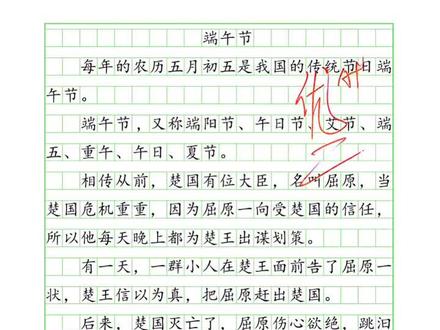 端午节
每年的农历五月初五是我国的传统节日端
午节。
端午节，又称端阳节、午日节、艾节、端
五、重午、午日、夏节。
相传从前，楚国有位大臣，名叫屈原，当
楚国危机重重，因为屈原一向受楚国的信任，
所以他每天晚上都为楚王出谋划策。
有一天，一群小人在楚王面前告了屈原一
状，楚王信以为真，把屈原赶出楚国。
后来，楚国灭亡了，屈原伤心欲绝，跳汨